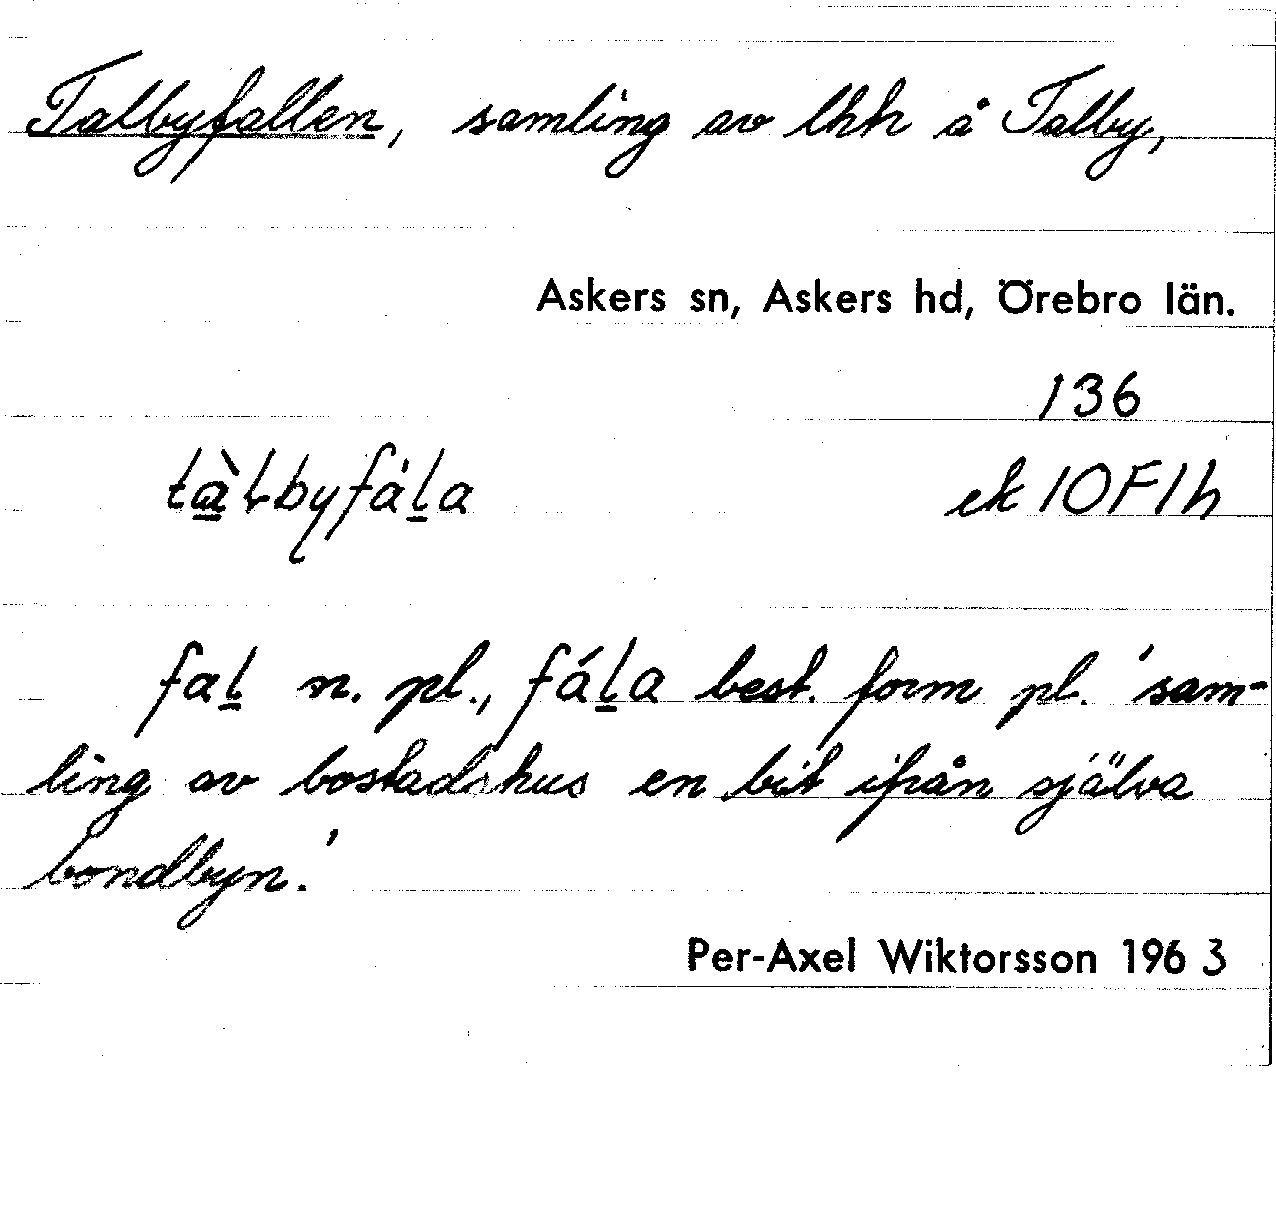 Talbyfallen, samling av lhh å Talby,
Askers sn, Askers hd, Örebro län.
136
tà̲ɫbyfáḻa ek 10F1h
faḻ n. pl., fáḻa best. form pl. 'sam-
ling av bostadshus en bit ifrån själva
bondbyn.'
Per-Axel Wiktorsson 1963